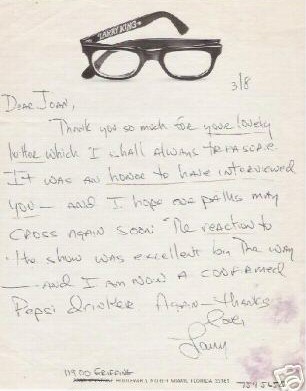 LARRY KING
3/8
DEAR JOAN,
Thank you so much for your lovely
letter which I shall always treasure
It was an honor to have interviewed
you — and I hope our paths may
cross again soon The reaction to
the show was excellent by the way
— and I am now a confirmed
Pepsi drinker again — Thanks
Love,
Larry
11900 GRIFFING
MIAMI, FLORIDA